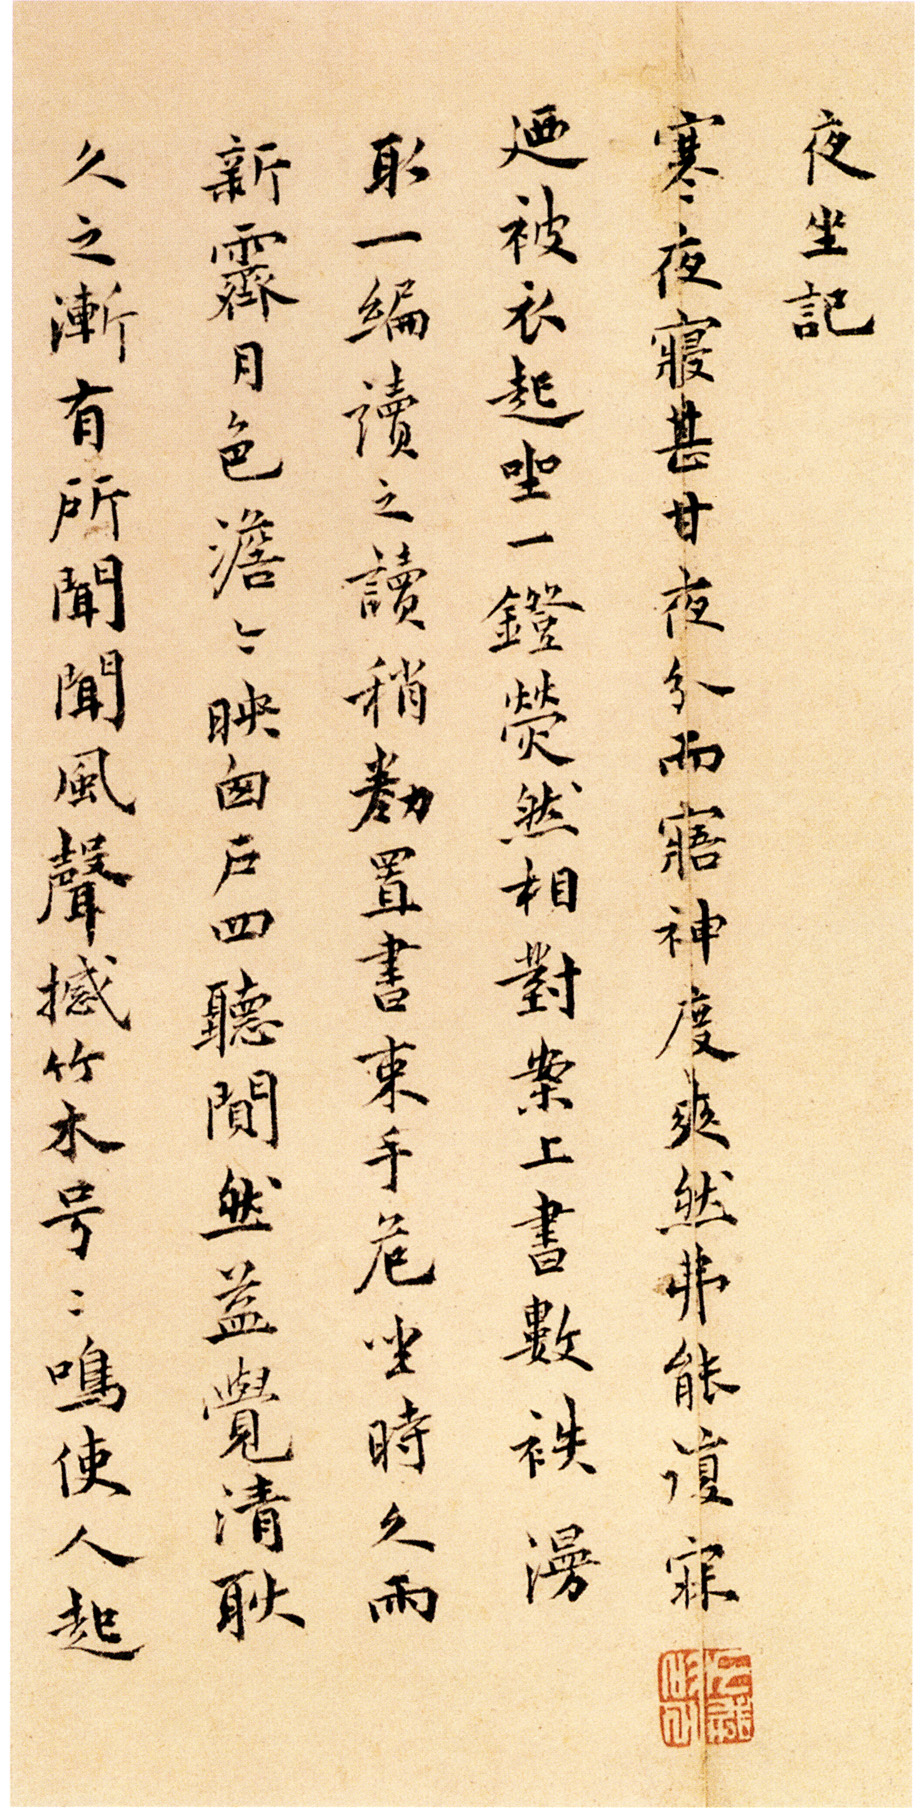 夜坐記
寒夜寢甚甘夜分而寤神度爽然弗能復寐
廼被衣起坐一鐙熒然相對案上書數袟漫
取一編讀之讀稍勌置書束手危坐時久雨
新霽月色澹〻映囱戶四聽闃然葢覺清耿
久之漸有所聞聞風聲撼竹木号〻鳴使人起